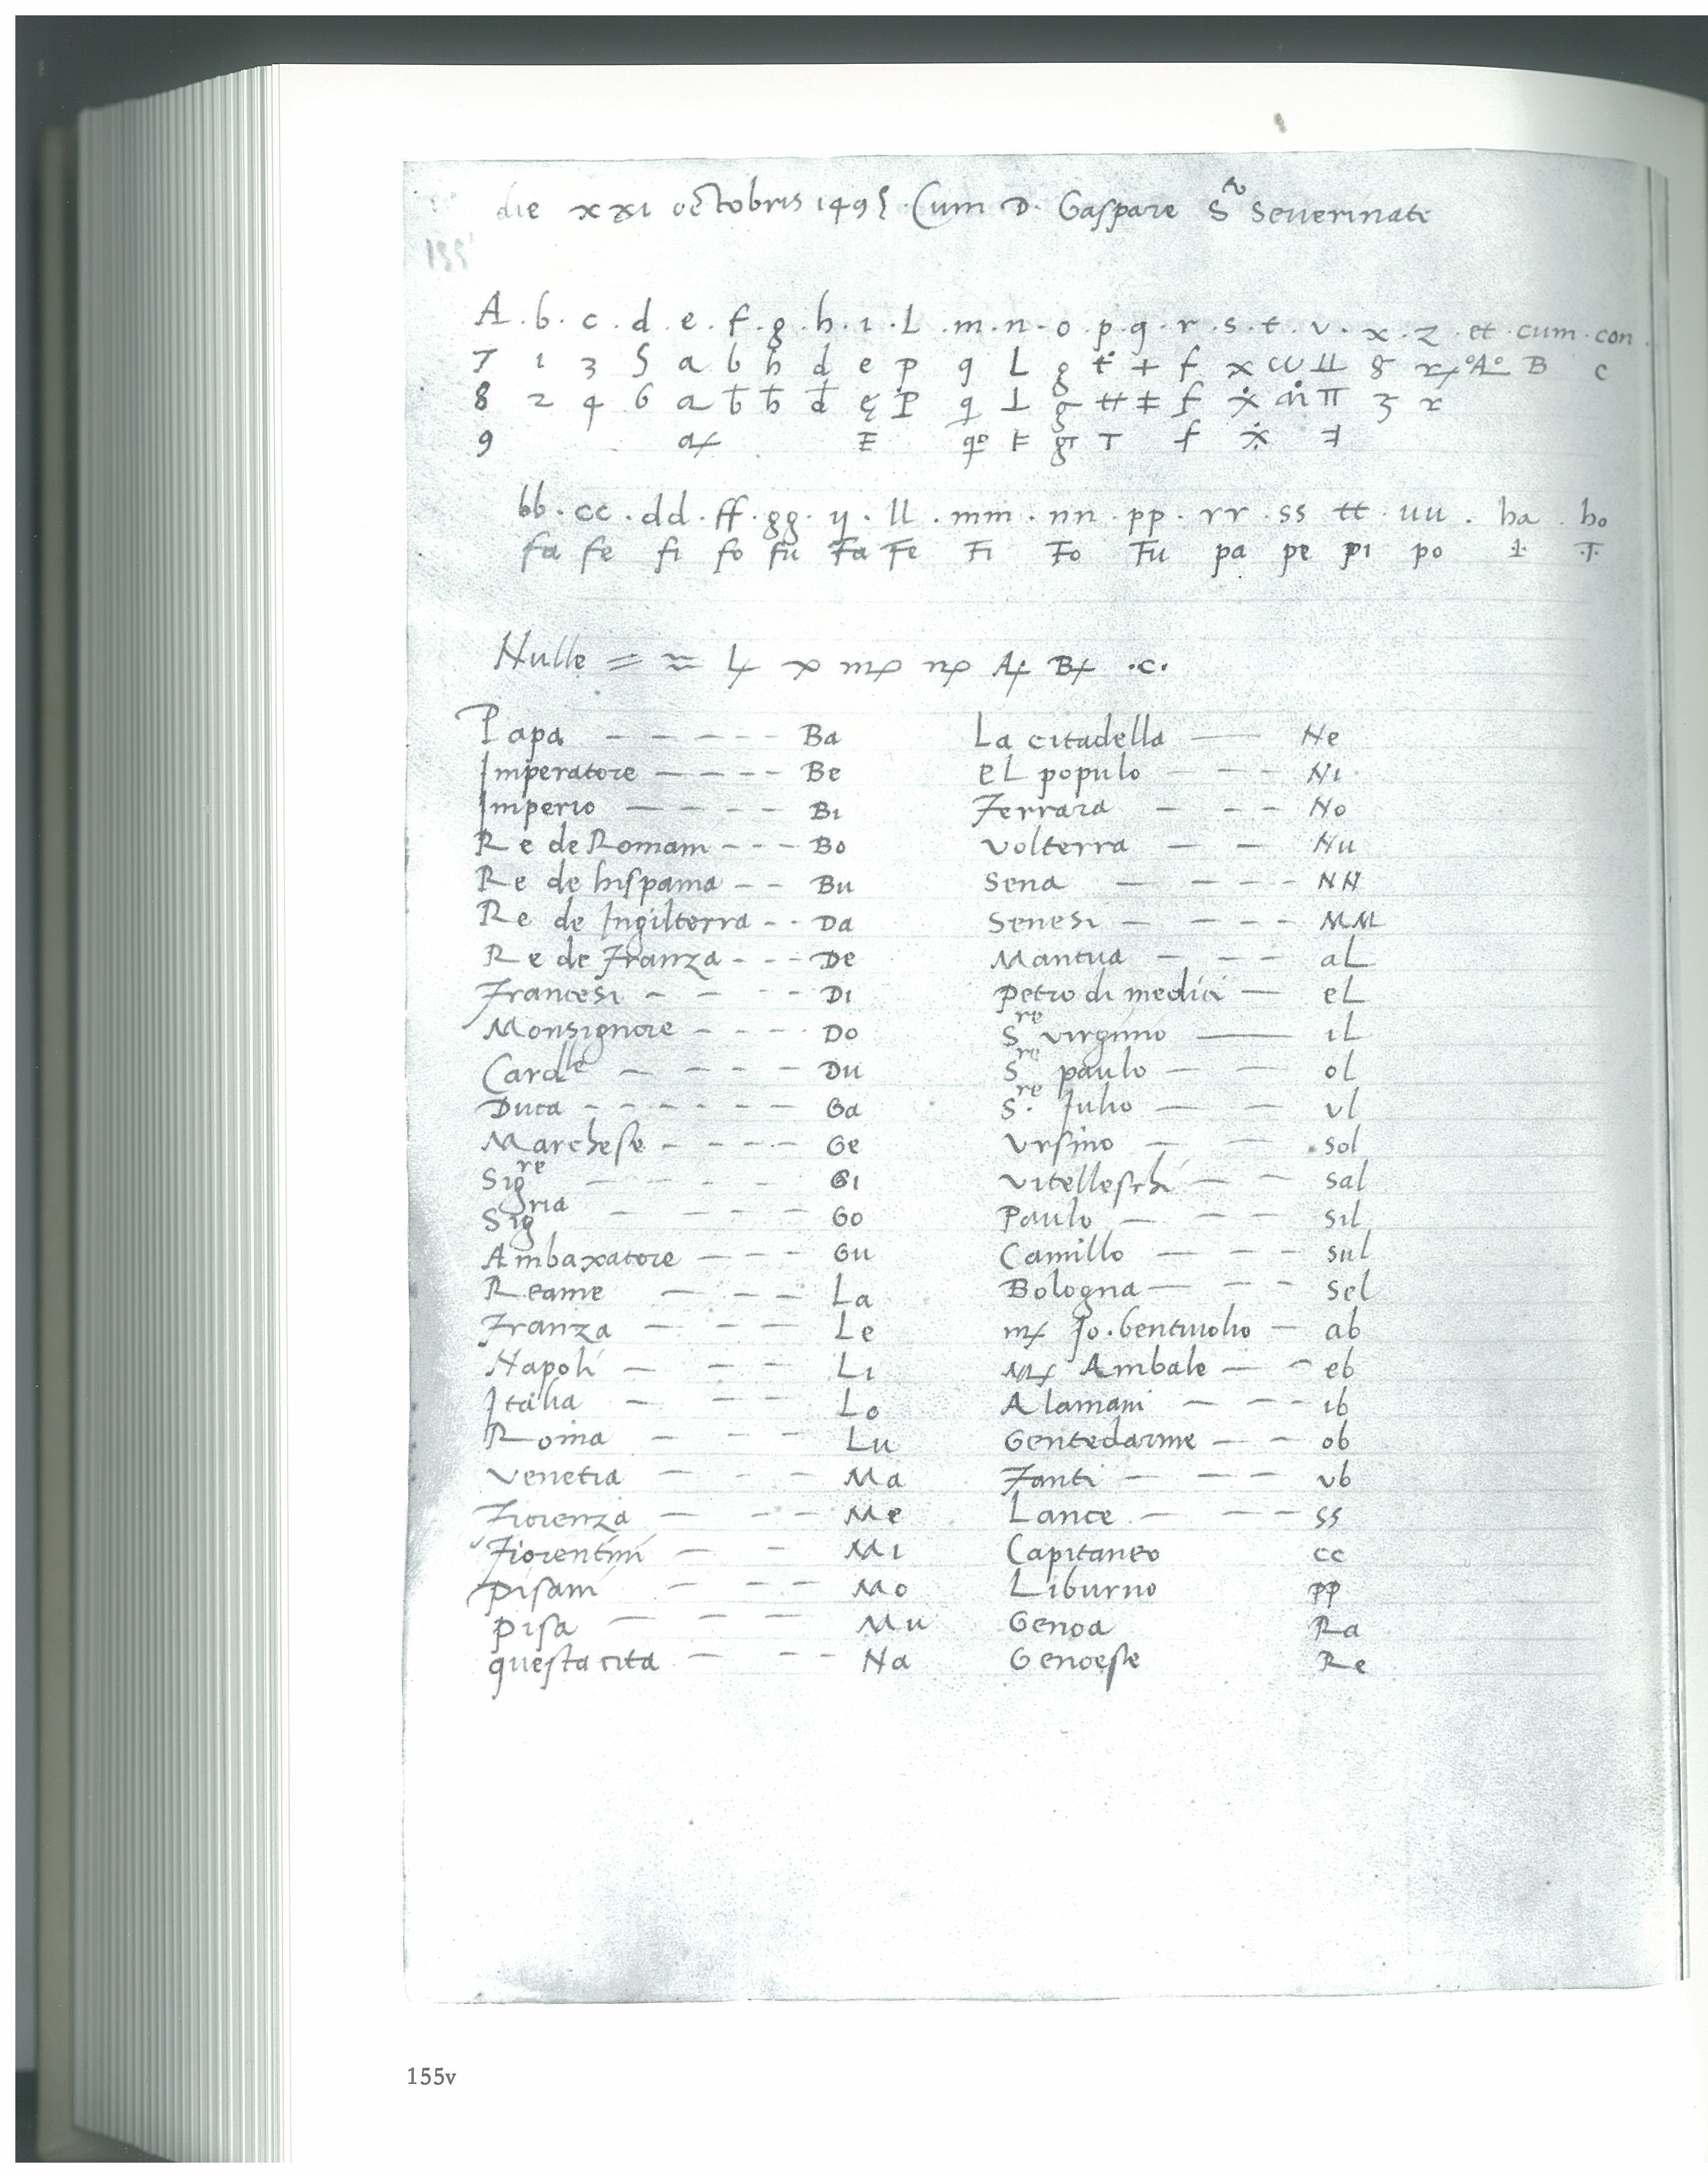 die xxi octobris 1495 Cum D. Gaspare Sto Severinate
155
A . b . c . d . e . f . g . h . i . L . m . n . o . p . q . r . s . t . v . x . z . et . cum . con .
7 1 3 5 a b h d e p q L g t + f x ɯ ⊥⊥ 8 r A B c
8 2 4 6 a b h d ę P q ⊥ g tt ‡ f ẋ π 3 r
9 a E q F g T f ẋ
bb . cc . dd . ff . gg . y . ll . mm . nn . pp . rr . ss tt . uu . ha . ho
fa fe fi fo fu Fa Fe Fi Fo Fu pa pe pi po 1 .T.
Nulle = ≈ .c.
Papa - - - - - Ba
Imperatore - - - - Be
Imperio - - - - Bi
Re de Romani - - - Bo
Re de hispania - - Bu
Re de Ingilterra - - Da
Re de Franza - - - De
Francesi - - - - Di
Monsignore - - - - Do
Cardle - - - - Du
Duca - - - - - - Ga
Marchese - - - - Ge
Sigre - - - - Gi
Sigria - - - - Go
Ambaxatore - - - Gu
Reame - - - La
Franza - - - Le
Napoli - - - Li
Italia - - - Lo
Roma - - - Lu
Venetia - - - Ma
Fiorenza - - - Me
Fiorentini - - Mi
Pisani - - - Mo
Pisa - - - Mu
questa cita - - - Na
La citadella — Ne
eL populo - - - Ni
Ferrara - - - No
Volterra - - Nu
Sena - - - - NN
Senesi - - - - MM
Mantua - - - aL
Petro di medici — eL
Sre virginio — iL
Sre paulo - - ol
Sre Julio - - vl
Vrsino - - sol
Vitelleschi - - sal
Paulo - - - sil
Camillo - - - sul
Bologna - - - sel
Jo. bentivolio - ab
Anibale - - eb
Alamani - - - ib
Gentedarme - - ob
Fanti - - - vb
Lance - - - ss
Capitaneo cc
Liburno pp
Genoa Ra
Genoese Re
155v